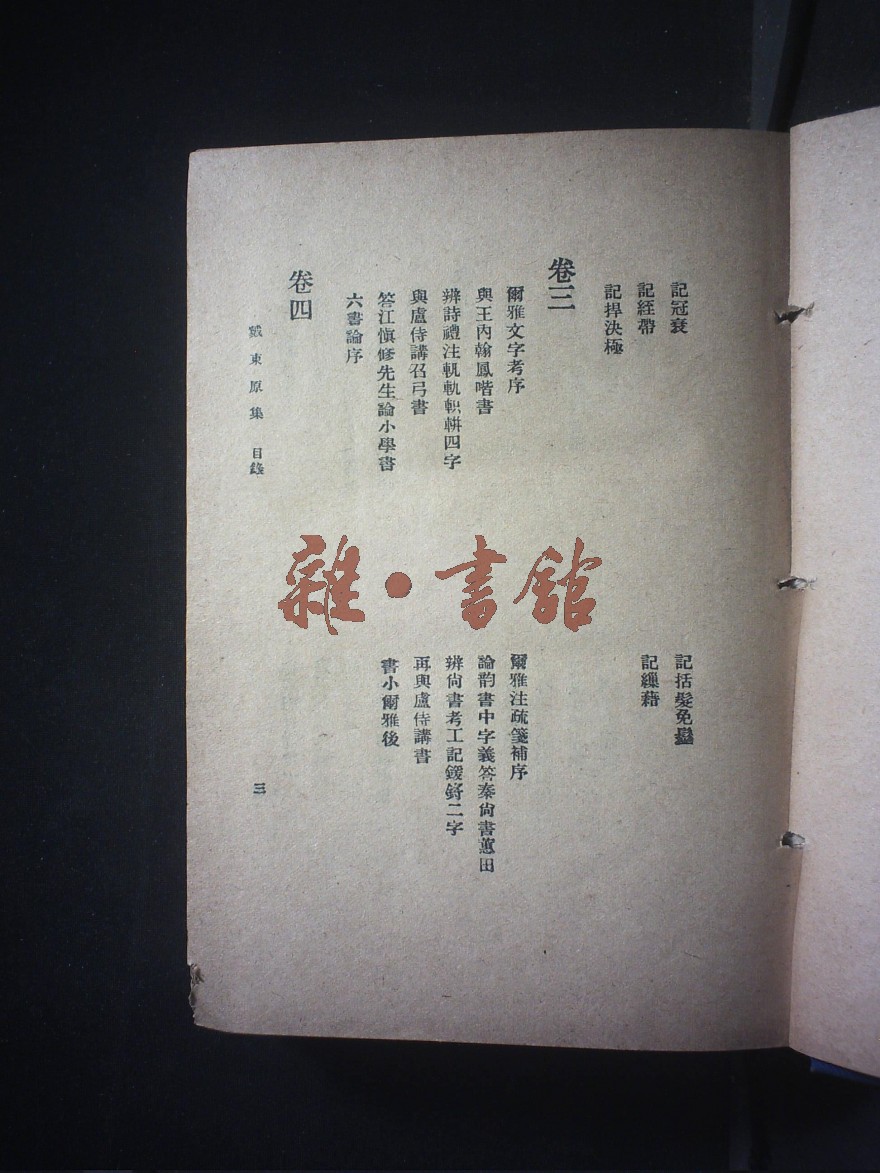 記冠衰
記括髮免髽
記絰帶
記繅藉
記捍決極
卷三
爾雅文字考序
爾雅注疏箋補序
與王內翰鳳喈書
論韵書中字義答秦尙書蕙田
辨詩禮注軓軌軹軿四字
辨尙書考工記鍰鋝二字
與盧侍講召弓書
再與盧侍講書
答江愼修先生論小學書
書小爾雅後
六書論序
卷四
戴東原集 目錄
三
雜·書館